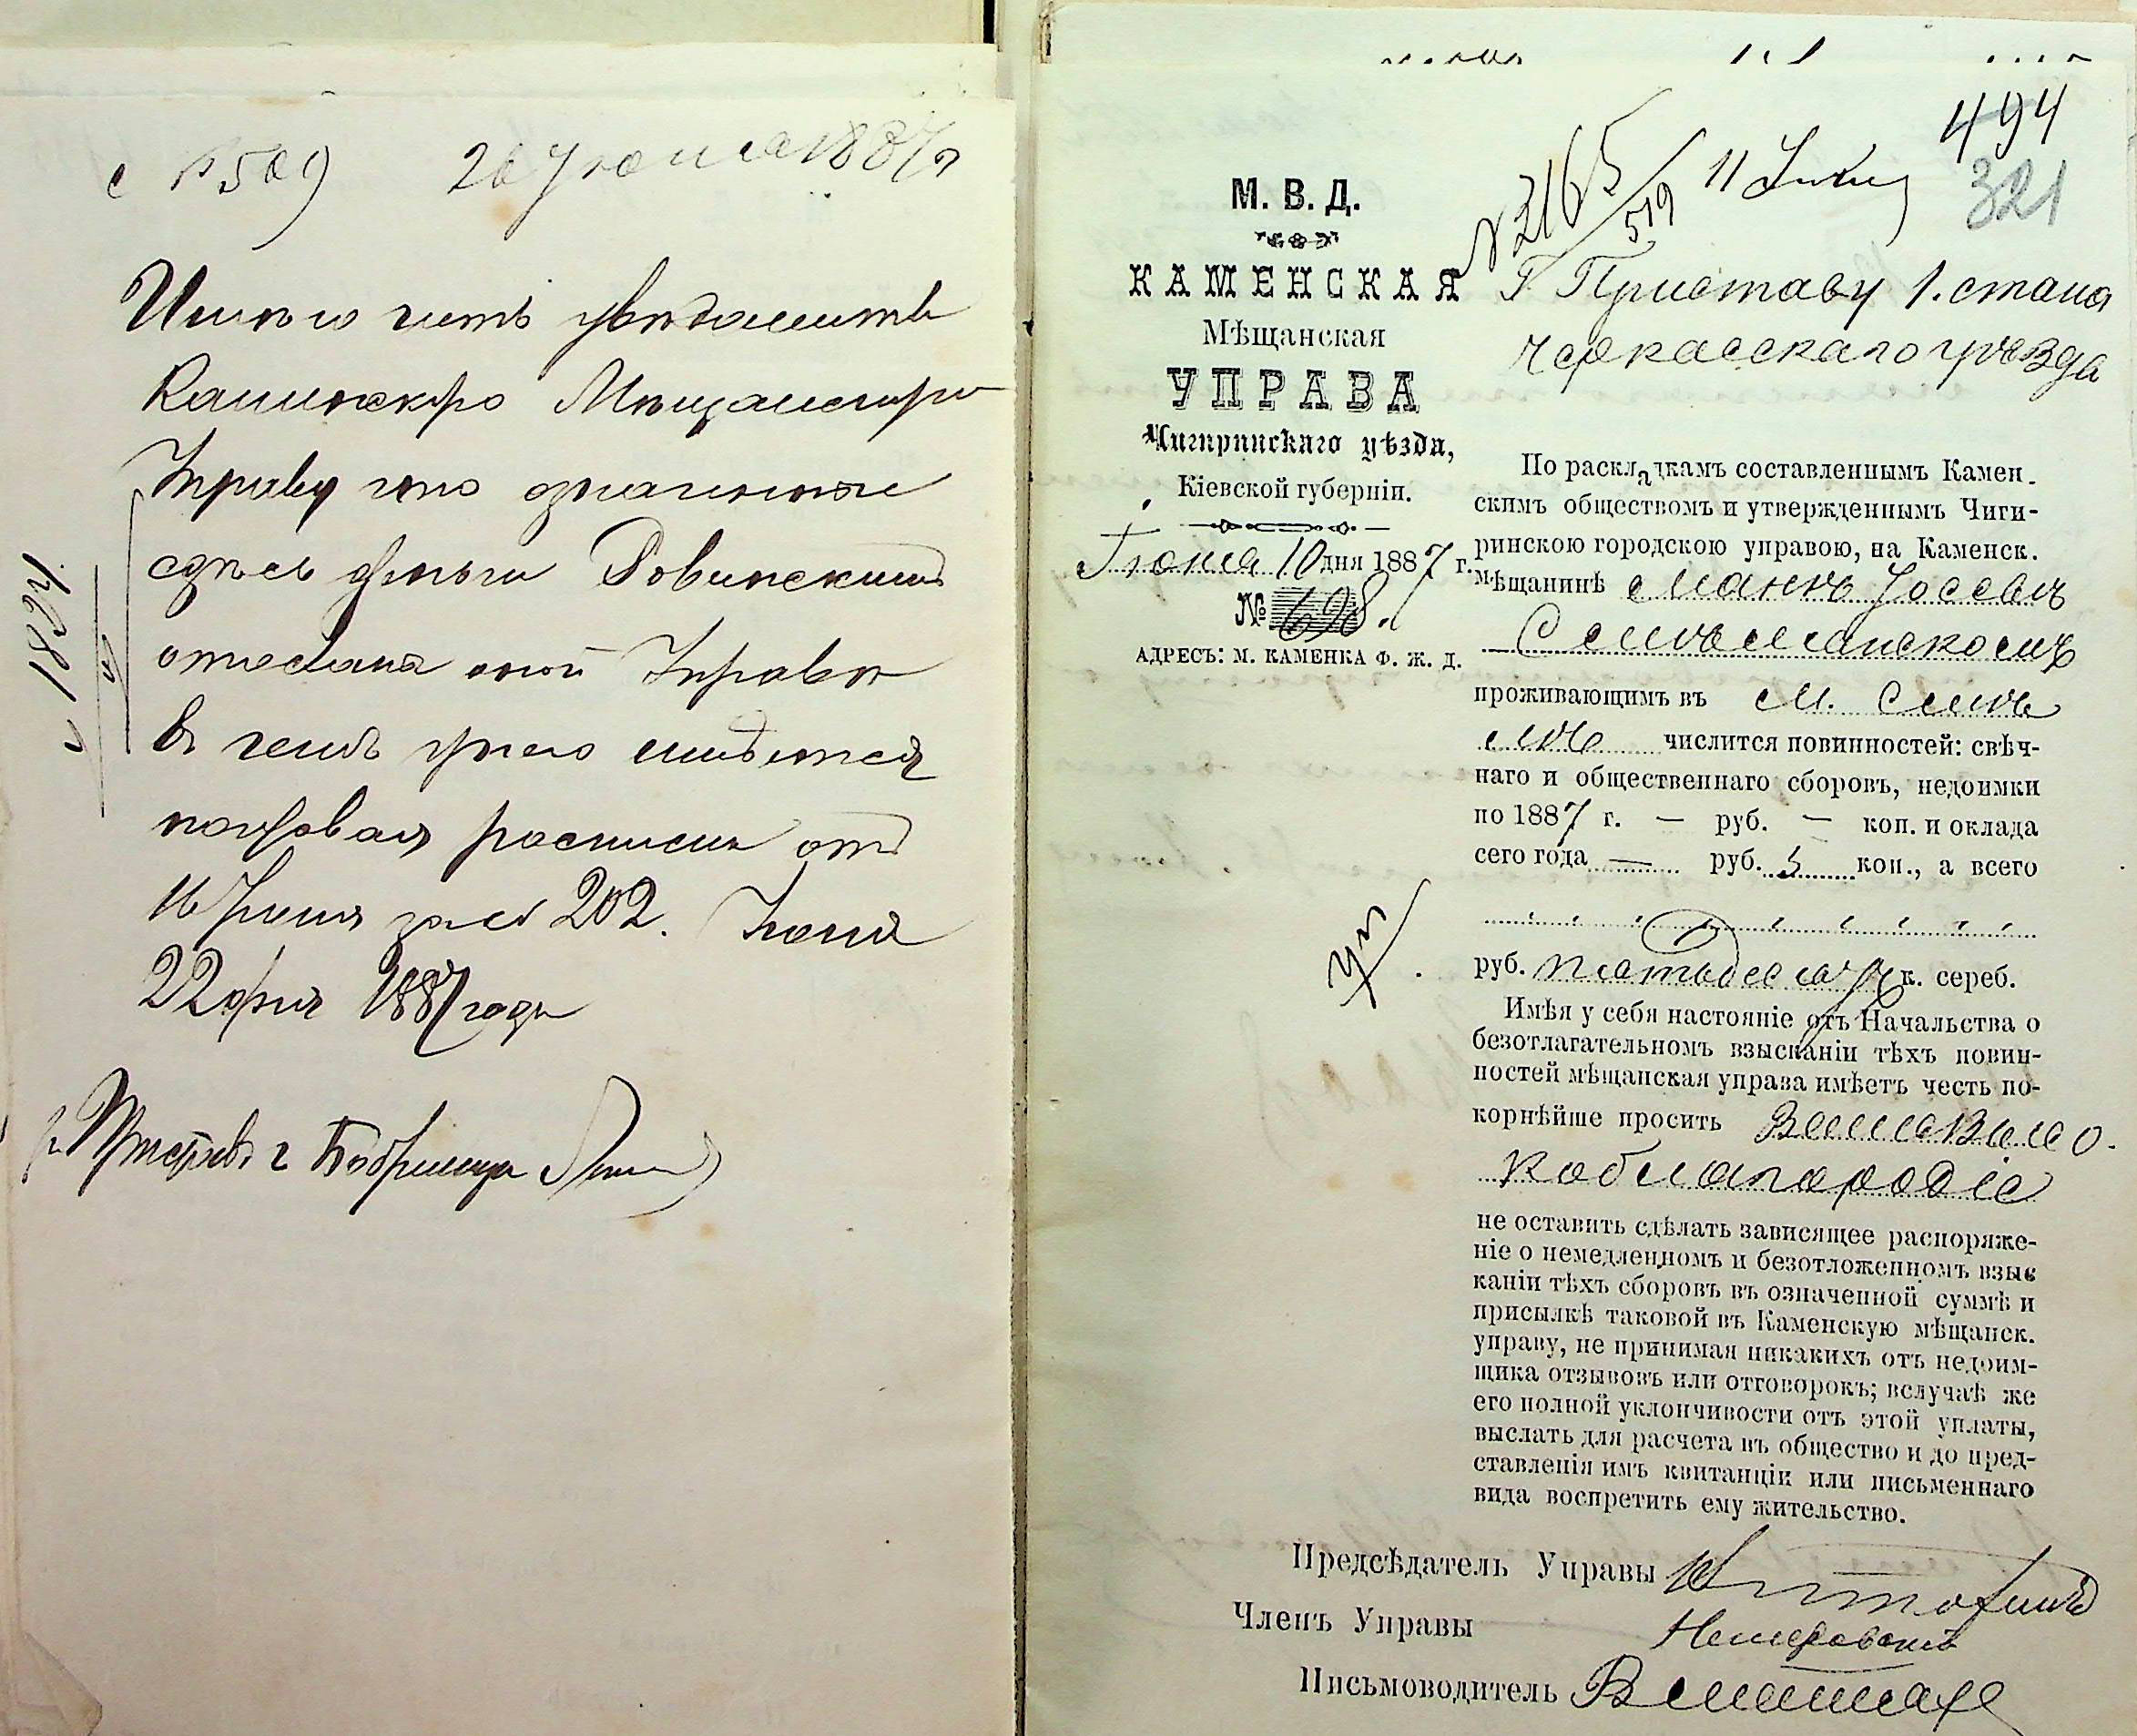 с № 569 26 Іюня 1887 г
Имѣю честь увѣдомить
Каменскую Мѣщанскую
Управу что означенные
здѣсь деньги Ровинскимъ
отосланы оной Управѣ
въ чемъ у него имѣется
почтовая росписка отъ
16 Іюня за № 202. Іюня
22 дня 1887 года
Приставъ г Бобринца
№ 1824
М. В. Д.
КАМЕНСКАЯ
Мѣщанская
УПРАВА
Чигиринскаго уѣзда,
Кіевской губерніи.
Іюня 10 дня 1887 г.
№ 698.
АДРЕСЪ: М. КАМЕНКА Ф. Ж. Д.
494
321
№ 2165/519 11 Іюня
Г Приставу 1. стана
Черкасскаго уѣзда
По раскладкамъ составленнымъ Камен-
скимъ обществомъ и утвержденнымъ Чиги-
ринскою городскою управою, на Каменск.
мѣщанинѣ
Смѣлянскомъ
проживающимъ въ м. Смѣ
лѣ числится повинностей: свѣч-
наго и общественнаго сборовъ, недоимки
по 1887 г. — руб. — коп. и оклада
сего года — руб. 5 коп., а всего
руб. к. сереб.
Имѣя у себя настояніе отъ Начальства о
безотлагательномъ взысканіи тѣхъ повин-
ностей мѣщанская управа имѣетъ честь по-
корнѣйше просить Ваше Высо-
коблагородіе
не оставить сдѣлать зависящее распоряже-
ніе о немедленномъ и безотложенномъ взыс
каніи тѣхъ сборовъ въ означенной суммѣ и
присылкѣ таковой въ Каменскую мѣщанск.
управу, не принимая никакихъ отъ недоим-
щика отзывовъ или отговорокъ; вслучаѣ же
его полной уклончивости отъ этой уплаты,
выслать для расчета въ общество и до пред-
ставленія имъ квитанціи или письменнаго
вида воспретить ему жительство.
Предсѣдатель Управы
Членъ Управы
Письмоводитель